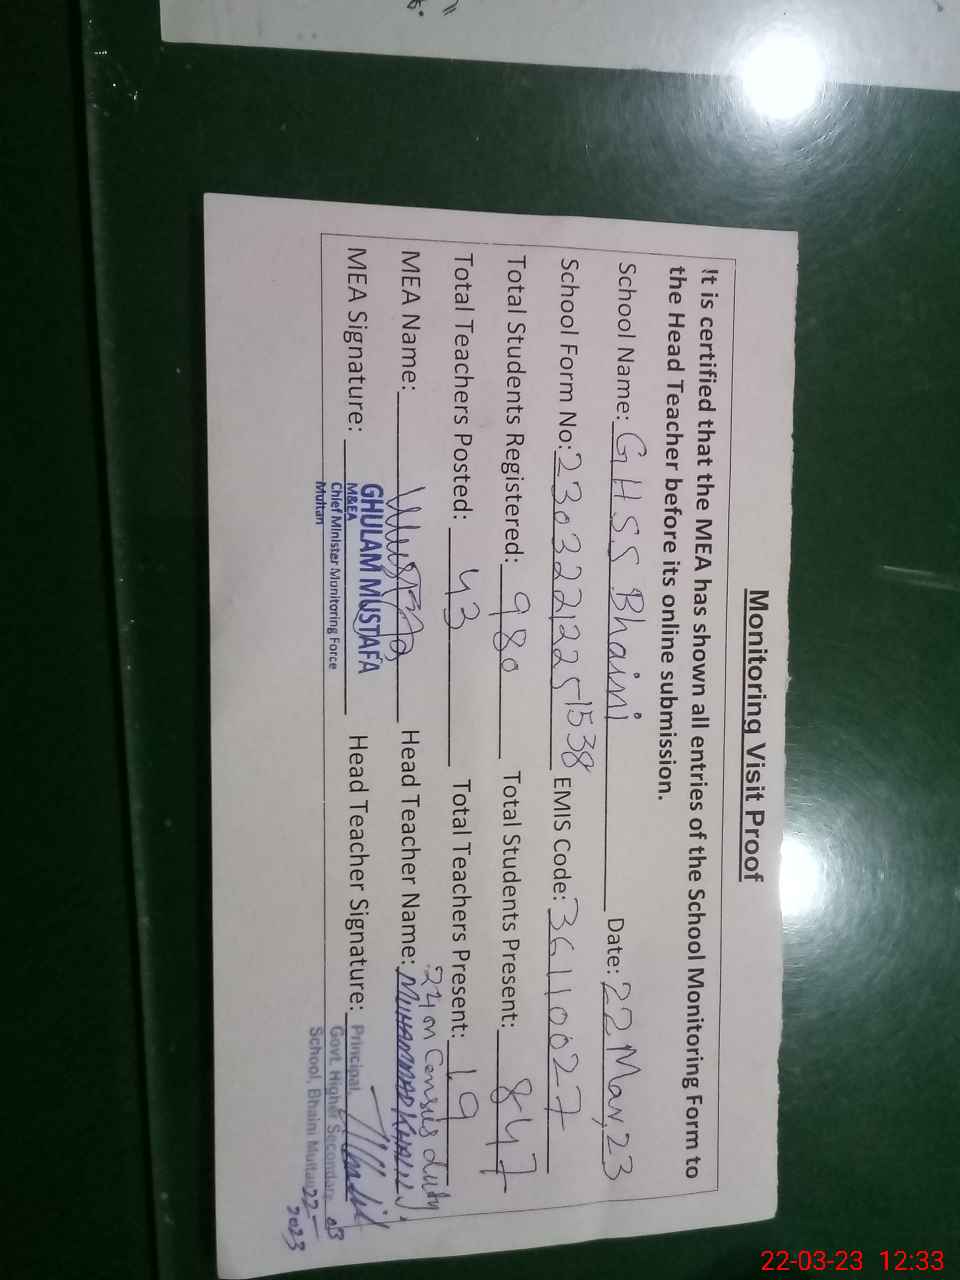 Monitoring Visit Proof
It is certified that the MEA has shown all entries of the School Monitoring Form to
the Head Teacher before its online submission.
School Name: GHSS Bhaini Date: 22 Mar, 23
School Form No: 23032212251538 EMIS Code: 36110027
Total Students Registered: 980 Total Students Present: 847
Total Teachers Posted: 43 Total Teachers Present: 19
24 on Census duty
MEA Name: Mustafa Head Teacher Name: MUHAMMAD KHALIL
MEA Signature: Head Teacher Signature:
GHULAM MUSTAFA
M&EA
Chief Minister Monitoring Force
Multan
Principal,
Govt. Higher Secondary
School, Bhaini Multan
22-03
2023
22-03-23 12:33